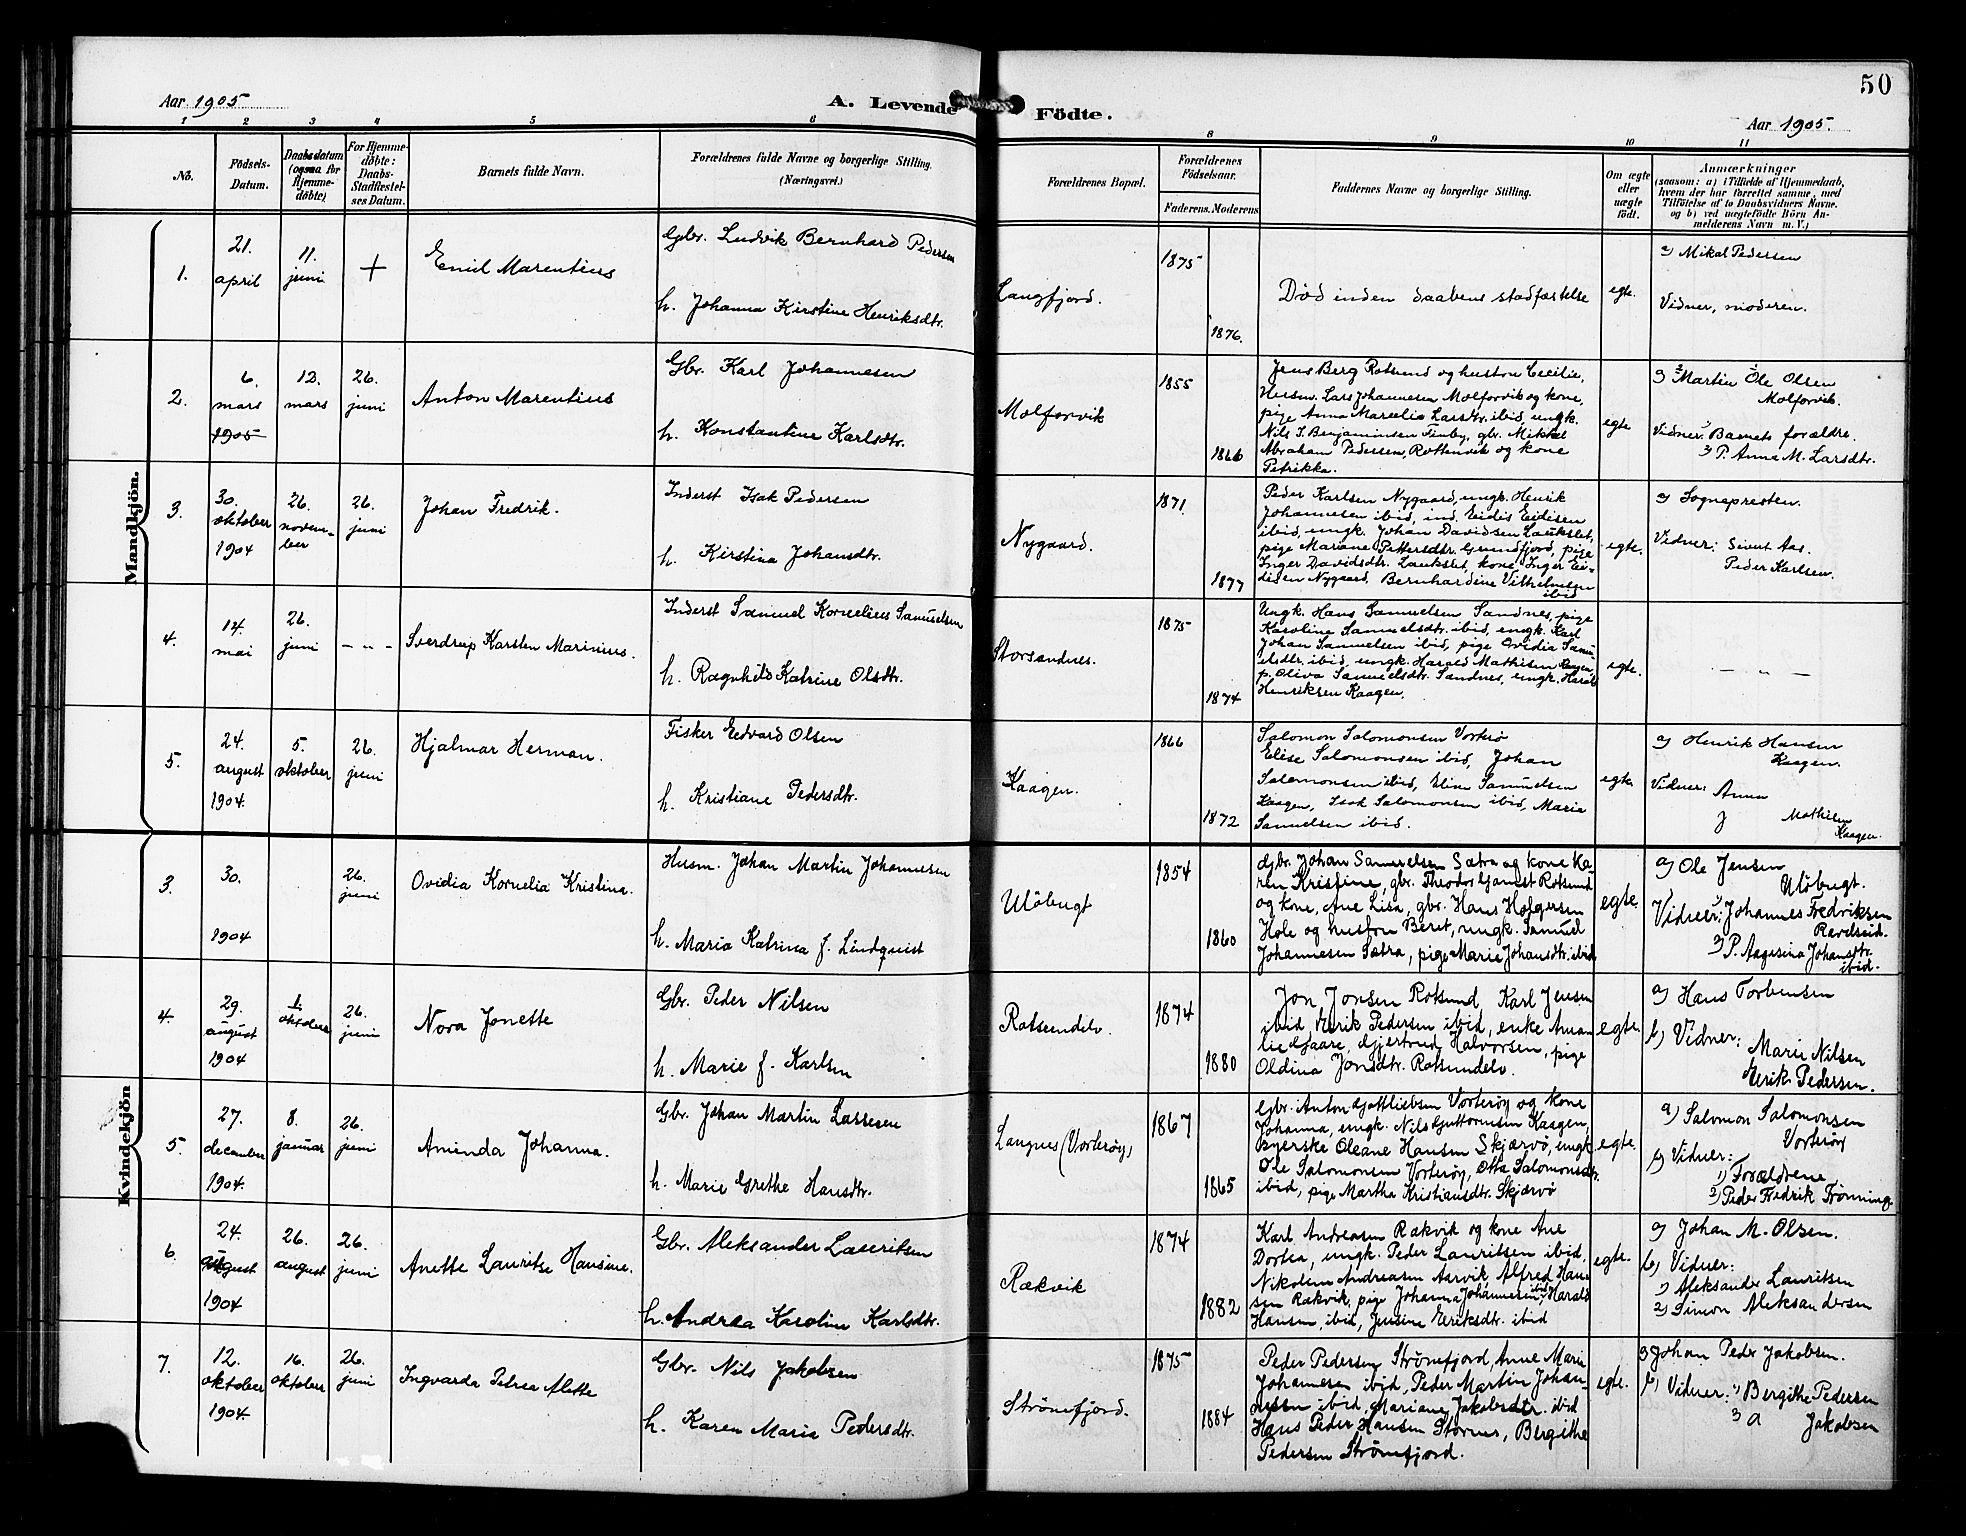 50
Aar 1905
A. Levende Födte.
Aar 1905.
1 2 3 4 5 6 8 9 10 11
No.
Födsels-
Datum.
Daabsdatum
(ogsaa for
Hjemme-
döbte)
For Hjemme-
döbte:
Daabs-
Stadfæstel-
ses Datum.
Barnets fulde Navn.
Forældrenes fulde Navne og borgerlige Stilling.
(Næringsvei.)
Forældrenes Bopæl.
Forældrenes
Födselsaar.
Faderens. Moderens
Faddernes Navne og borgerlige Stilling.
Om ægte
eller
uægte
födt.
Anmærkninger
(saasom: a) i Tilfælde af Hjemmedaab,
hvem der har forrettet samme, med
Tilföielse af to Daabsvidners Navne.
og b) ved uægtefödte Börn An-
melderens Navn m. V.)
Mandkjön.
1.
21.
april
11.
juni
+
Emil Marentius
Gbr. Ludvik Bernhard Pedersen
h. Johanna Kirstine Henriksdtr.
Langfjord.
1875
1876.
Död inden daabens stadfæstelse
egte.
a) Mikal Pedersen
Vidner, moderen.
2.
6.
mars
1905
12.
mars
26.
juni
Anton Marentius
Gbr. Karl Johannesen
h. Konstantine Karlsdtr.
Molforvik
1855
1866
Jens Berg Rotsund og hustru Cecilie,
Husm. Lars Johannesen Molforvik og kone,
pige Anna Marcelia Larsdtr. ibid, ungk.
Nils S. Benjaminsen Finby, gbr. Mikkel
Abraham Pedersen, Rottenvik og kone
Petrikka.
egte
a) Martin Ole Olsen
Molforvik.
Vidner: 1) Barnets forældre.
2) P. Anna M. Larsdtr.
3.
30.
oktober
1904
26.
novem-
ber
26.
juni
Johan Fredrik.
Inderst Isak Pedersen
h. Kirstina Johansdtr.
Nygaard.
1871.
1877
Peder Karlsen Nygaard, ungk. Henrik
Johannesen ibid, ind. Eidis Eidisen
ibid, ungk. Johan Davidsen Laukslet,
pige Mariane Pettersdtr. Grundfjord, pige
Inger Davidsdtr. Laukslet, kone Inger Ei-
disen Nygaard, Bernhardine Vilhelmsen
ibid
egte.
a) Sognepresten.
Vidner: Sivert Aas.
Peder Karlsen.
4.
14.
mai
26.
juni
- " -
Sverdrup Karsten Marinius.
Inderst Samuel Kornelius Samuelsen
h. Ragnhild Katrine Olsdtr.
Storsandnes.
1875
1874
Ungk. Hans Samuelsen Sandnes, pige
Karoline Samuelsdtr. ibid, ungk. Karl
Johan Samuelsen ibid, pige Ovidia Samu-
elsdtr. ibid, ungk. Harald Mathisen Kaagen,
p. Oliva Samuelsdtr. Sandnes, ungk. Harald
Henriksen Kaagen.
egte.
- " -
5.
24.
august
1904.
5.
oktober
26.
juni
Hjalmar Herman.
Fisker Edvard Olsen
h. Kristiane Pedersdtr.
Kaagen.
1866
1872
Salomon Salomonsen Vorterö
Elise Salomonsen ibid, Johan
Salomonsen ibid, Eline Samuelsen
Kaagen, Isak Salomonsen ibid, Marie
Samuelsen ibid.
egte.
a) Henrik Hansen
Kaagen.
Vidner: Anna
J Mathisen
Kaagen.
Kvindekjön
3.
30.
1904
26.
juni
Ovidia Kornelia Kristina.
Husm. Johan Martin Johannesen
h. Maria Katrina f. Lindquist
Ulöbugt
1854
1860
Gbr. Johan Samuelsen Sætra og kone Ka-
ren Kristine, gbr. Theodor Gamst Rotsund
og kone, Ane Lisa, gbr. Hans Holgersen
Hole og hustru Beret, ungk. Samuel
Johannesen Sætra, pige Marie Johansdtr. ibid
egte.
a) Ole Jensen
Ulöbugt.
Vidner: 1) Johannes Fredriksen
Ravelseid.
2) P. Aagesina Johansdtr.
ibid.
4.
29.
august
1904
1.
oktober
26.
juni
Nora Jonette
Gbr. Peder Nilsen
h. Marie f. Karlsen
Rotsundelv.
1874
1880
Jon Jonsen Rotsund Karl Jensen
ibid, Erik Pedersen ibid, enke Ama-
lie Gaare, Gjertrud Halvorsen, pige
Oldina Jonsdtr. Rotsundelv.
egte.
a) Hans Torbensen
b) Vidner:
Marie Nilsen
Erik Pedersen.
5.
27.
december
1904.
8.
januar
26.
juni
Aminda Johanna.
Gbr. Johan Martin Lassesen
h. Marie Grethe Hansdtr.
Langnes (Vorteröy)
1867
1865
Gbr. Anton Gottliebsen Vorteröy og kone
Johanna, ungk. Nils Guttormsen Kaagen,
Byerske Oleane Hansen Skjærvö, ungk.
Ole Salomonsen Vorteröy, Otta Salomonsdtr.
ibid, pige Martha Kristiansdtr. Skjærvö
egte.
a) Salomon Salomonsen
Vorteröy
b) Vidner:
1) Forældrene
2) Peder Fredrik Frönning
6.
24.
august
1904
26.
august
26.
juni
Anette Lauritse Hansine.
Gbr. Aleksander Lauritsen
h. Andrea Karoline Karlsdtr.
Rækvik
1874
1882
Karl Andreasen Rækvik og kone Ane
Dortea, ungk. Peder Lauritsen ibid,
Nikolem Andreasen Aarvik, Alfred Han-
sen Rækvik, pige Johanna Johannesen ibid Harald
Hansen, ibid, Jensine Eriksdtr. ibid
egte.
a) Johan M. Olsen.
b) Vidner:
1) Aleksander Lauritsen
2) Simon Aleksandersen
7.
12.
oktober
1904.
16.
oktober
26.
juni
Ingvarda Petrea Alette
Gbr. Nils Jakobsen
h. Karen Marie Pedersdtr.
Strömfjord.
1875
1884
Peder Pedersen Strömfjord, Anne Marie
Johannesen ibid, Peder Martin Johan-
nesen ibid, Mariane Jakobsdtr. ibid
Hans Peder Hansen Stornes, Bergithe
Pedersen Strömfjord.
egte.
a) Johan Peder Jakobsen.
b) Vidner: 1) Bergithe Pedersen
2) A Jakobsen